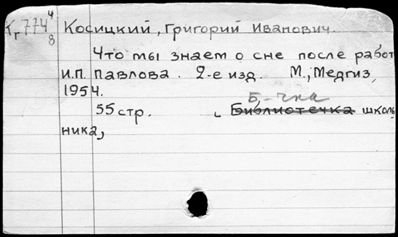 Кг 774 4/8 Косицкий, Григорий Иванович.
Что мы знаем о сне после работ
И.П. Павлова. 2-е изд. М., Медгиз,
1954.
Б-чка
55 стр. Библиотечка школь
ника,